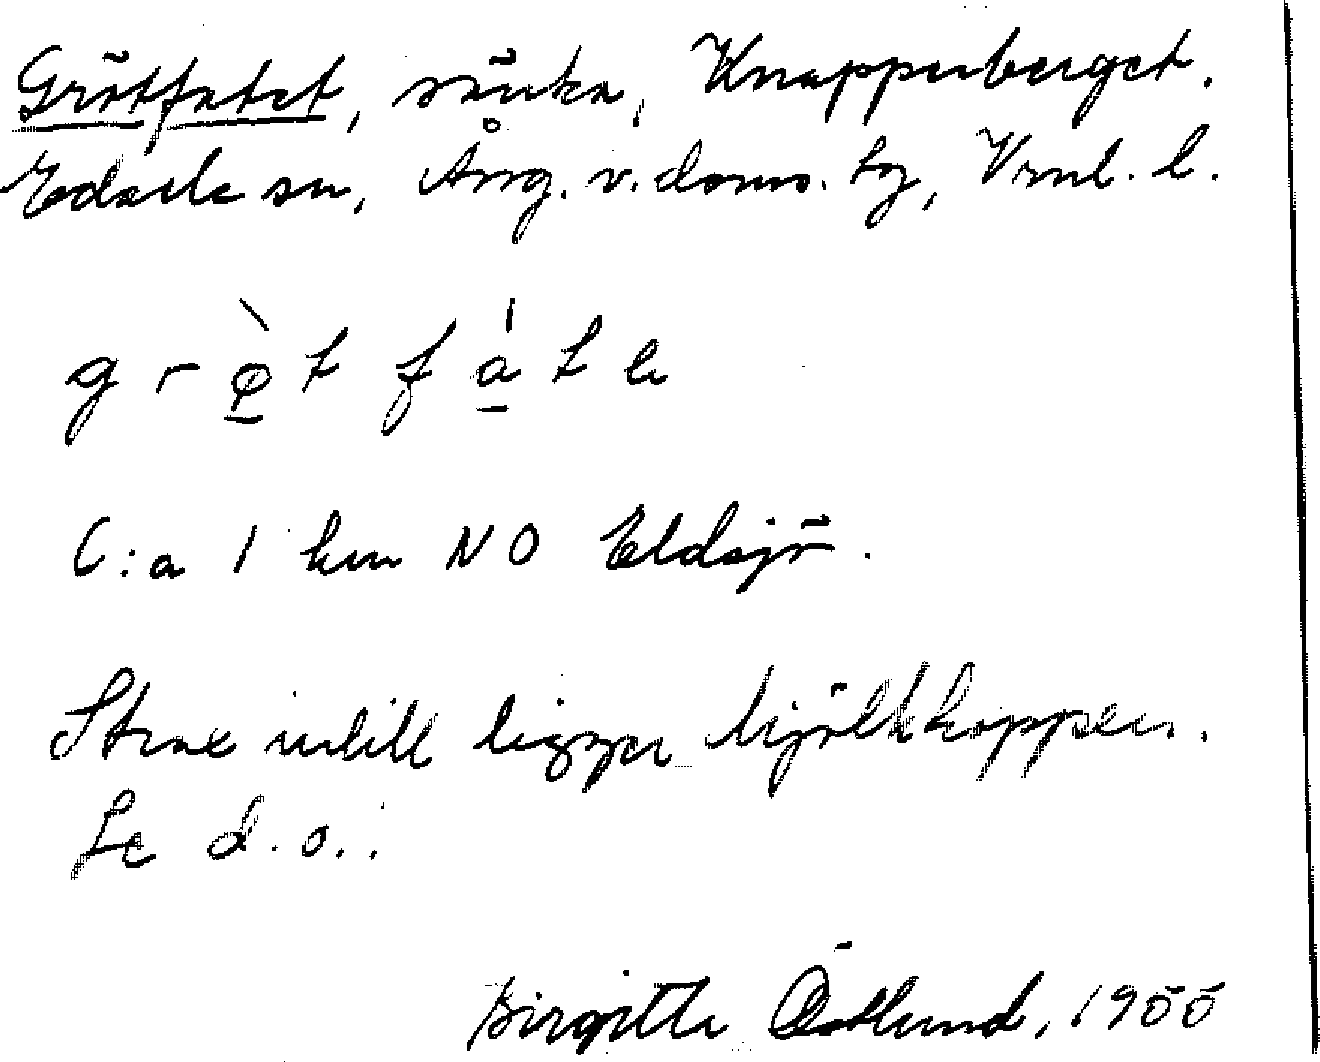 Grötfatet, sänka, Knapperberget.
Edsele sn, Ång. v. doms. tg, Vrnl. l.
g r ọ̀ t f ạ́ t e
C:a 1 km NO Eldsjö.
Strax intill ligger Mjölkkoppen.
Se d.o.
Birgitta Östlund, 1955